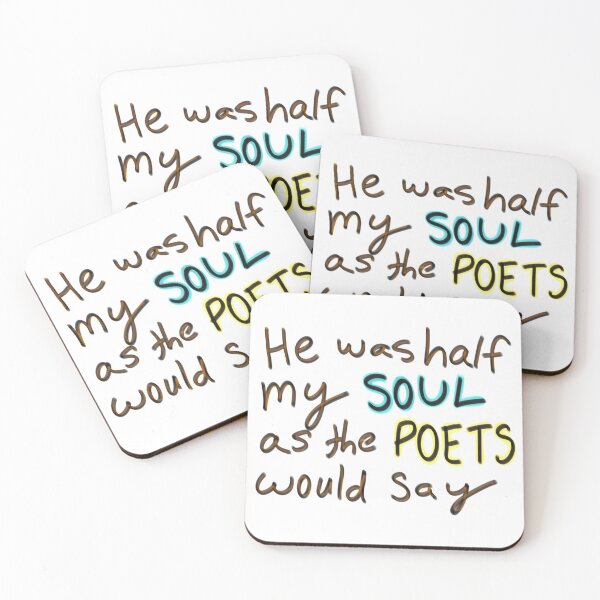 He was half
my SOUL
He was half
my SOUL
as the POETS
He was half
my SOUL
as the POETS
would
He was half
my SOUL
as the POETS
would say